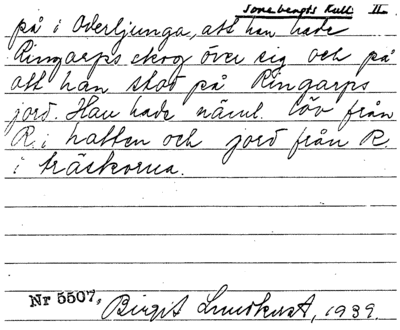 Sonabengts Kull II.
på i Oderljunga, att han hade
Ringarps skog över sig och på
att han stod på Ringarps
jord. Han hade näml. löv från
R. i hatten och jord från R.
i träskorna.
Nr 5507, Birgit Lundkvist, 1939.